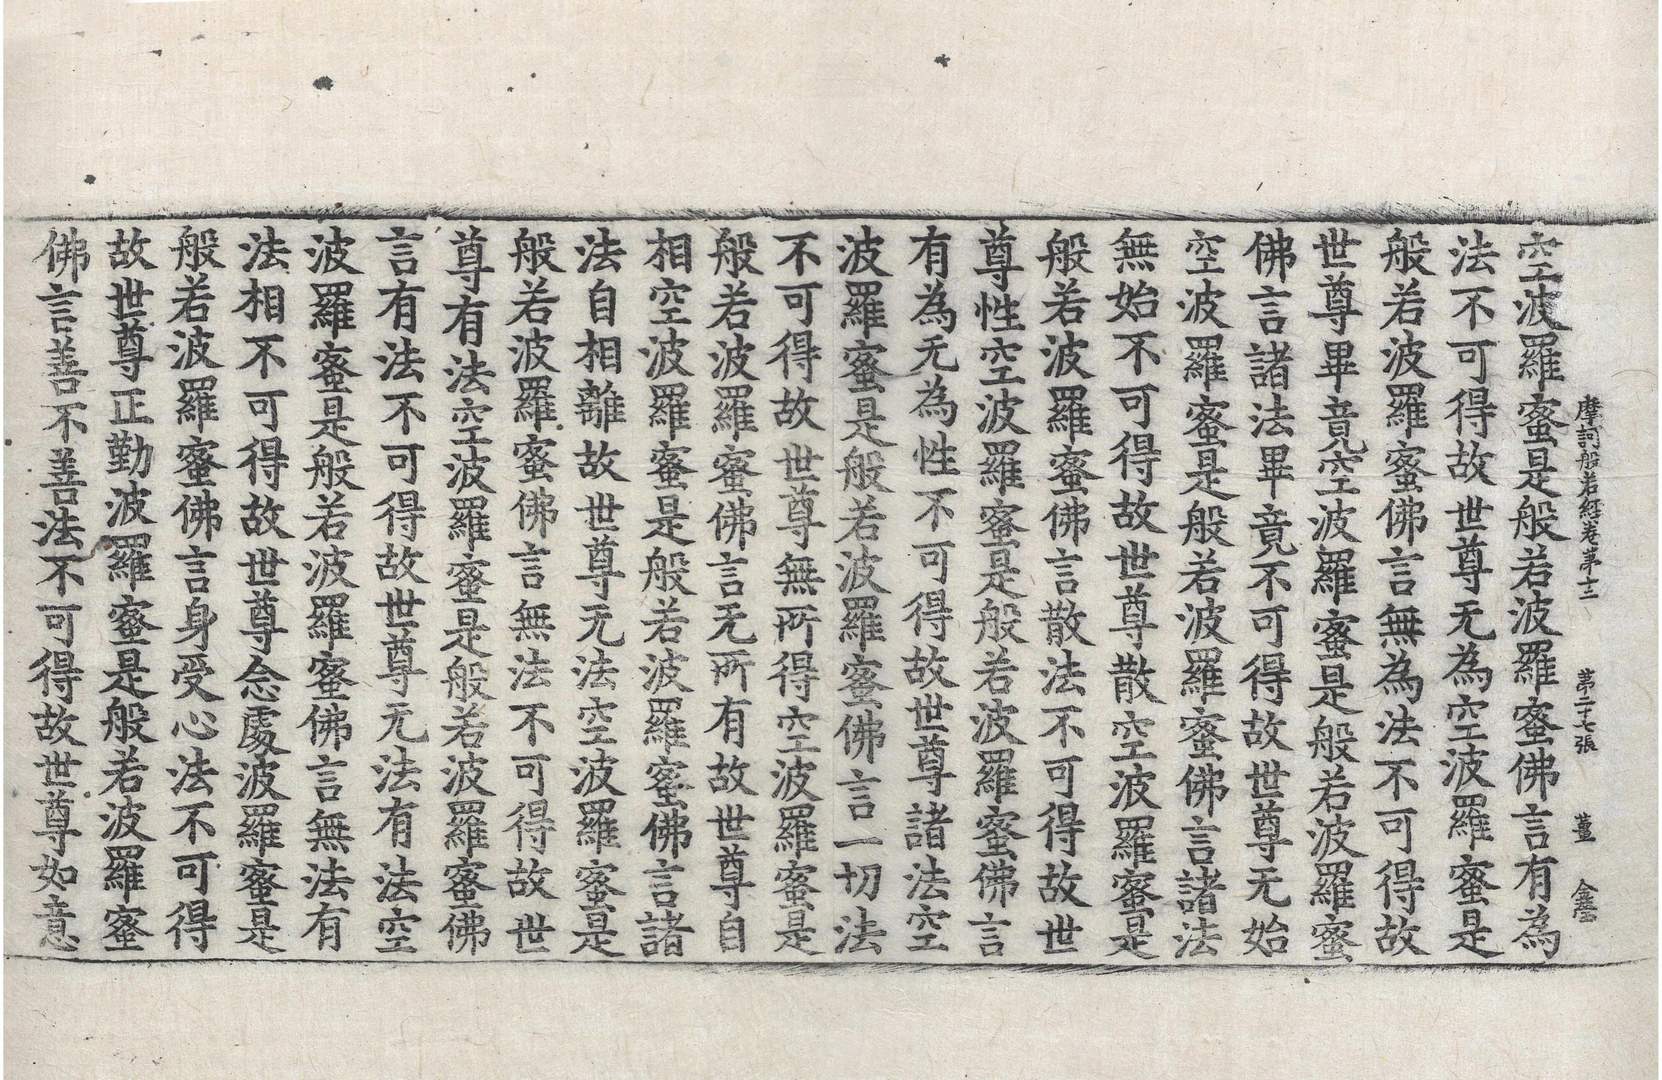 摩訶般若經卷苐十二 苐二十七張 董
空波羅蜜是般若波羅蜜佛言有為
法不可得故世尊无為空波羅蜜是
般若波羅蜜佛言無為法不可得故
世尊畢竟空波羅蜜是般若波羅蜜
佛言諸法畢竟不可得故世尊无始
空波羅蜜是般若波羅蜜佛言諸法
無始不可得故世尊散空波羅蜜是
般若波羅蜜佛言散法不可得故世
尊性空波羅蜜是般若波羅蜜佛言
有為无為性不可得故世尊諸法空
波羅蜜是般若波羅蜜佛言一切法
不可得故世尊無所得空波羅蜜是
般若波羅蜜佛言无所有故世尊自
相空波羅蜜是般若波羅蜜佛言諸
法自相離故世尊无法空波羅蜜是
般若波羅蜜佛言無法不可得故世
尊有法空波羅蜜是般若波羅蜜佛
言有法不可得故世尊无法有法空
波羅蜜是般若波羅蜜佛言無法有
法相不可得故世尊念處波羅蜜是
般若波羅蜜佛言身受心法不可得
故世尊正勤波羅蜜是般若波羅蜜
佛言善不善法不可得故世尊如意